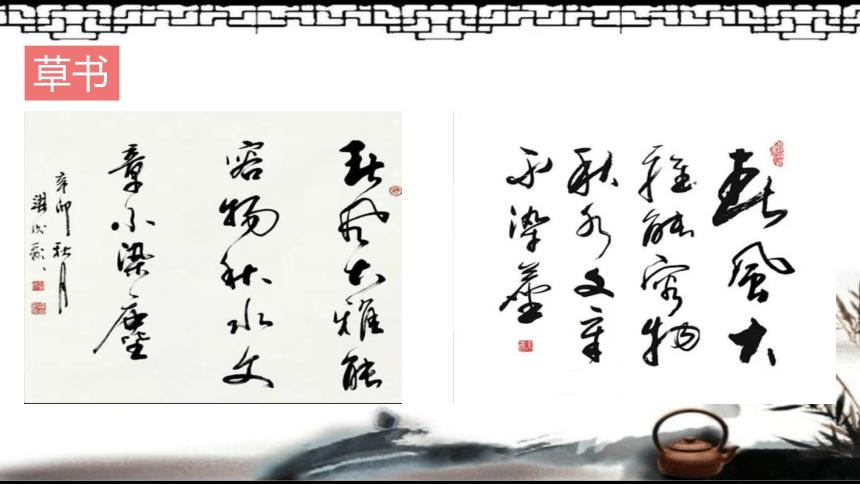 草书
春风大雅能
容物秋水文
章不染尘
辛卯秋月
春风大
雅能容物
秋水文章
不染尘